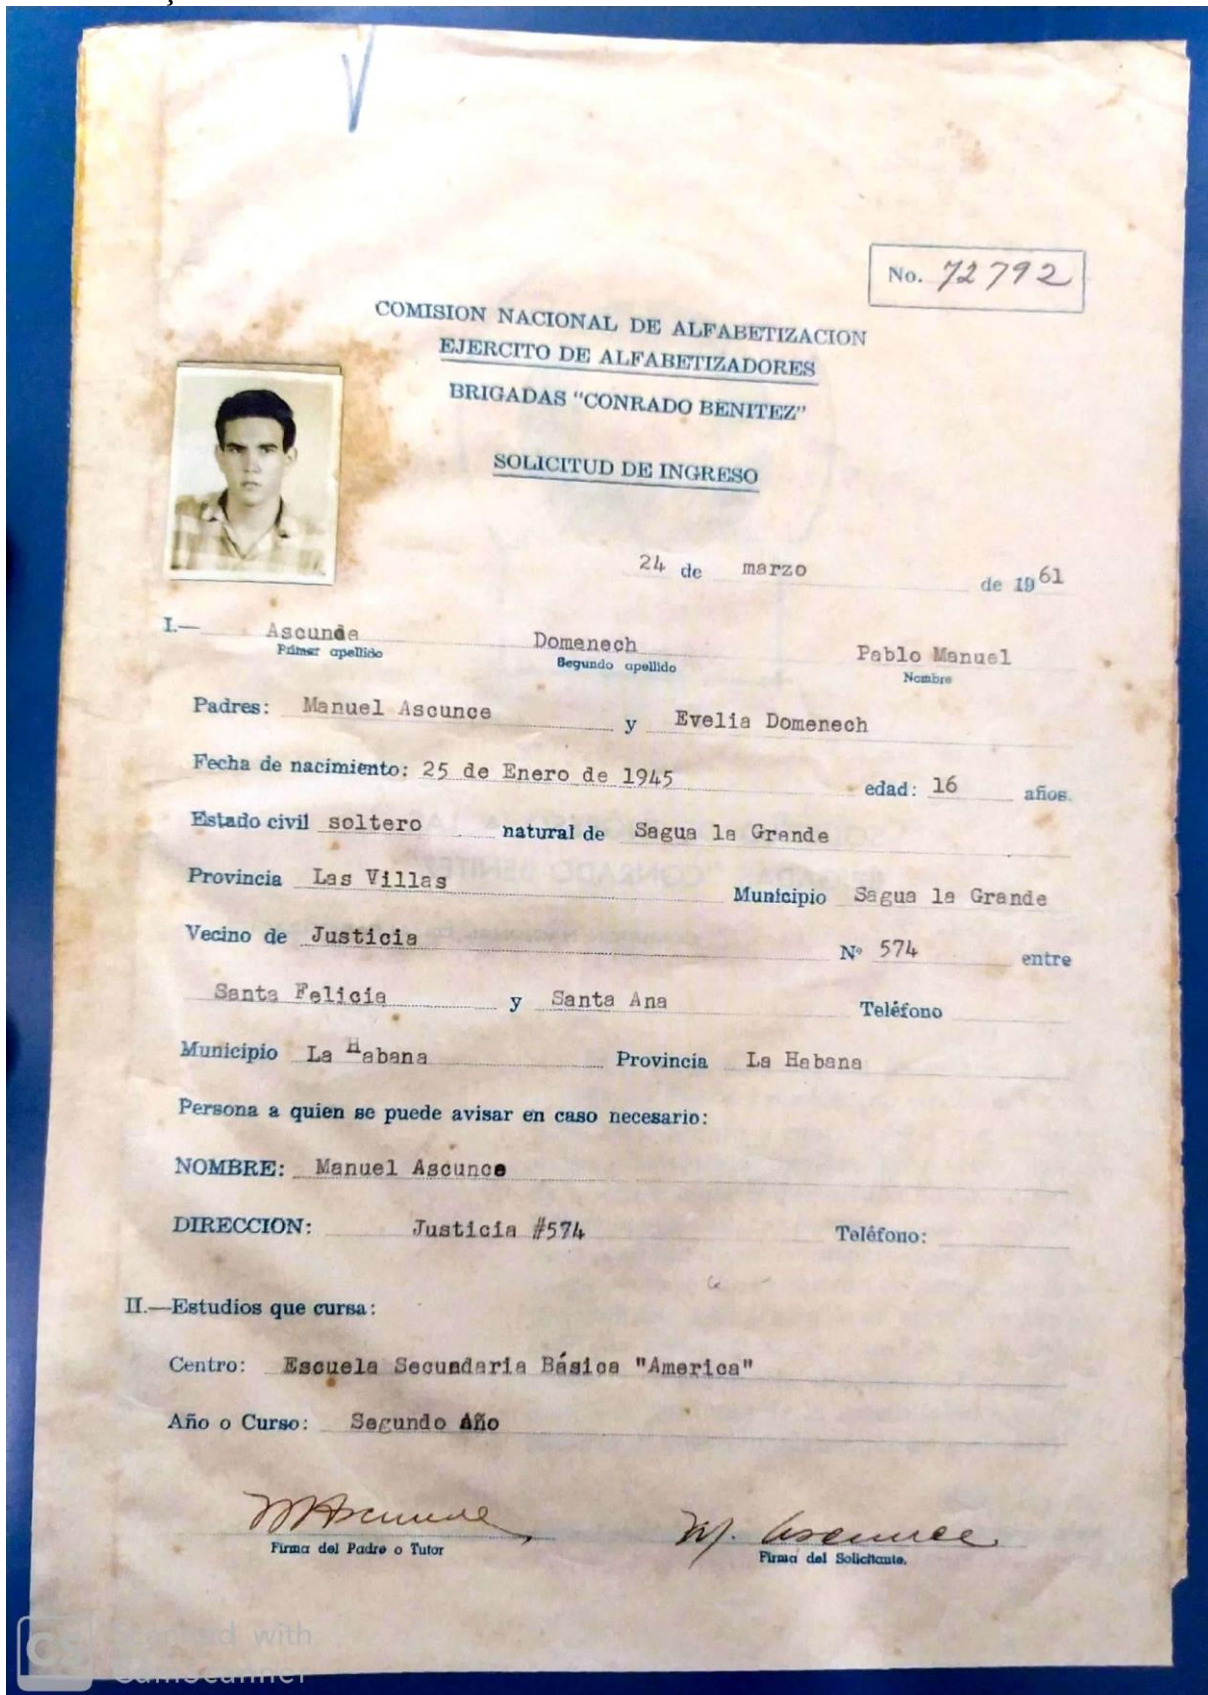 No. 72792
COMISION NACIONAL DE ALFABETIZACION
EJERCITO DE ALFABETIZADORES
BRIGADAS "CONRADO BENITEZ"
SOLICITUD DE INGRESO
24 de marzo de 1961
I.— Ascunce Domenech Pablo Manuel
Primer apellido Segundo apellido Nombre
Padres: Manuel Ascunce y Evelia Domenech
Fecha de nacimiento: 25 de Enero de 1945 edad: 16 años.
Estado civil soltero natural de Sagua la Grande
Provincia Las Villas Municipio Sagua la Grande
Vecino de Justicia Nº 574 entre
Santa Felicia y Santa Ana Teléfono
Municipio La Habana Provincia La Habana
Persona a quien se puede avisar en caso necesario:
NOMBRE: Manuel Ascunce
DIRECCION: Justicia #574 Teléfono:
II.—Estudios que cursa:
Centro: Escuela Secundaria Básica "America"
Año o Curso: Segundo Año
M Ascunce M. Ascunce
Firma del Padre o Tutor Firma del Solicitante.
CS Scanned with
CamScanner